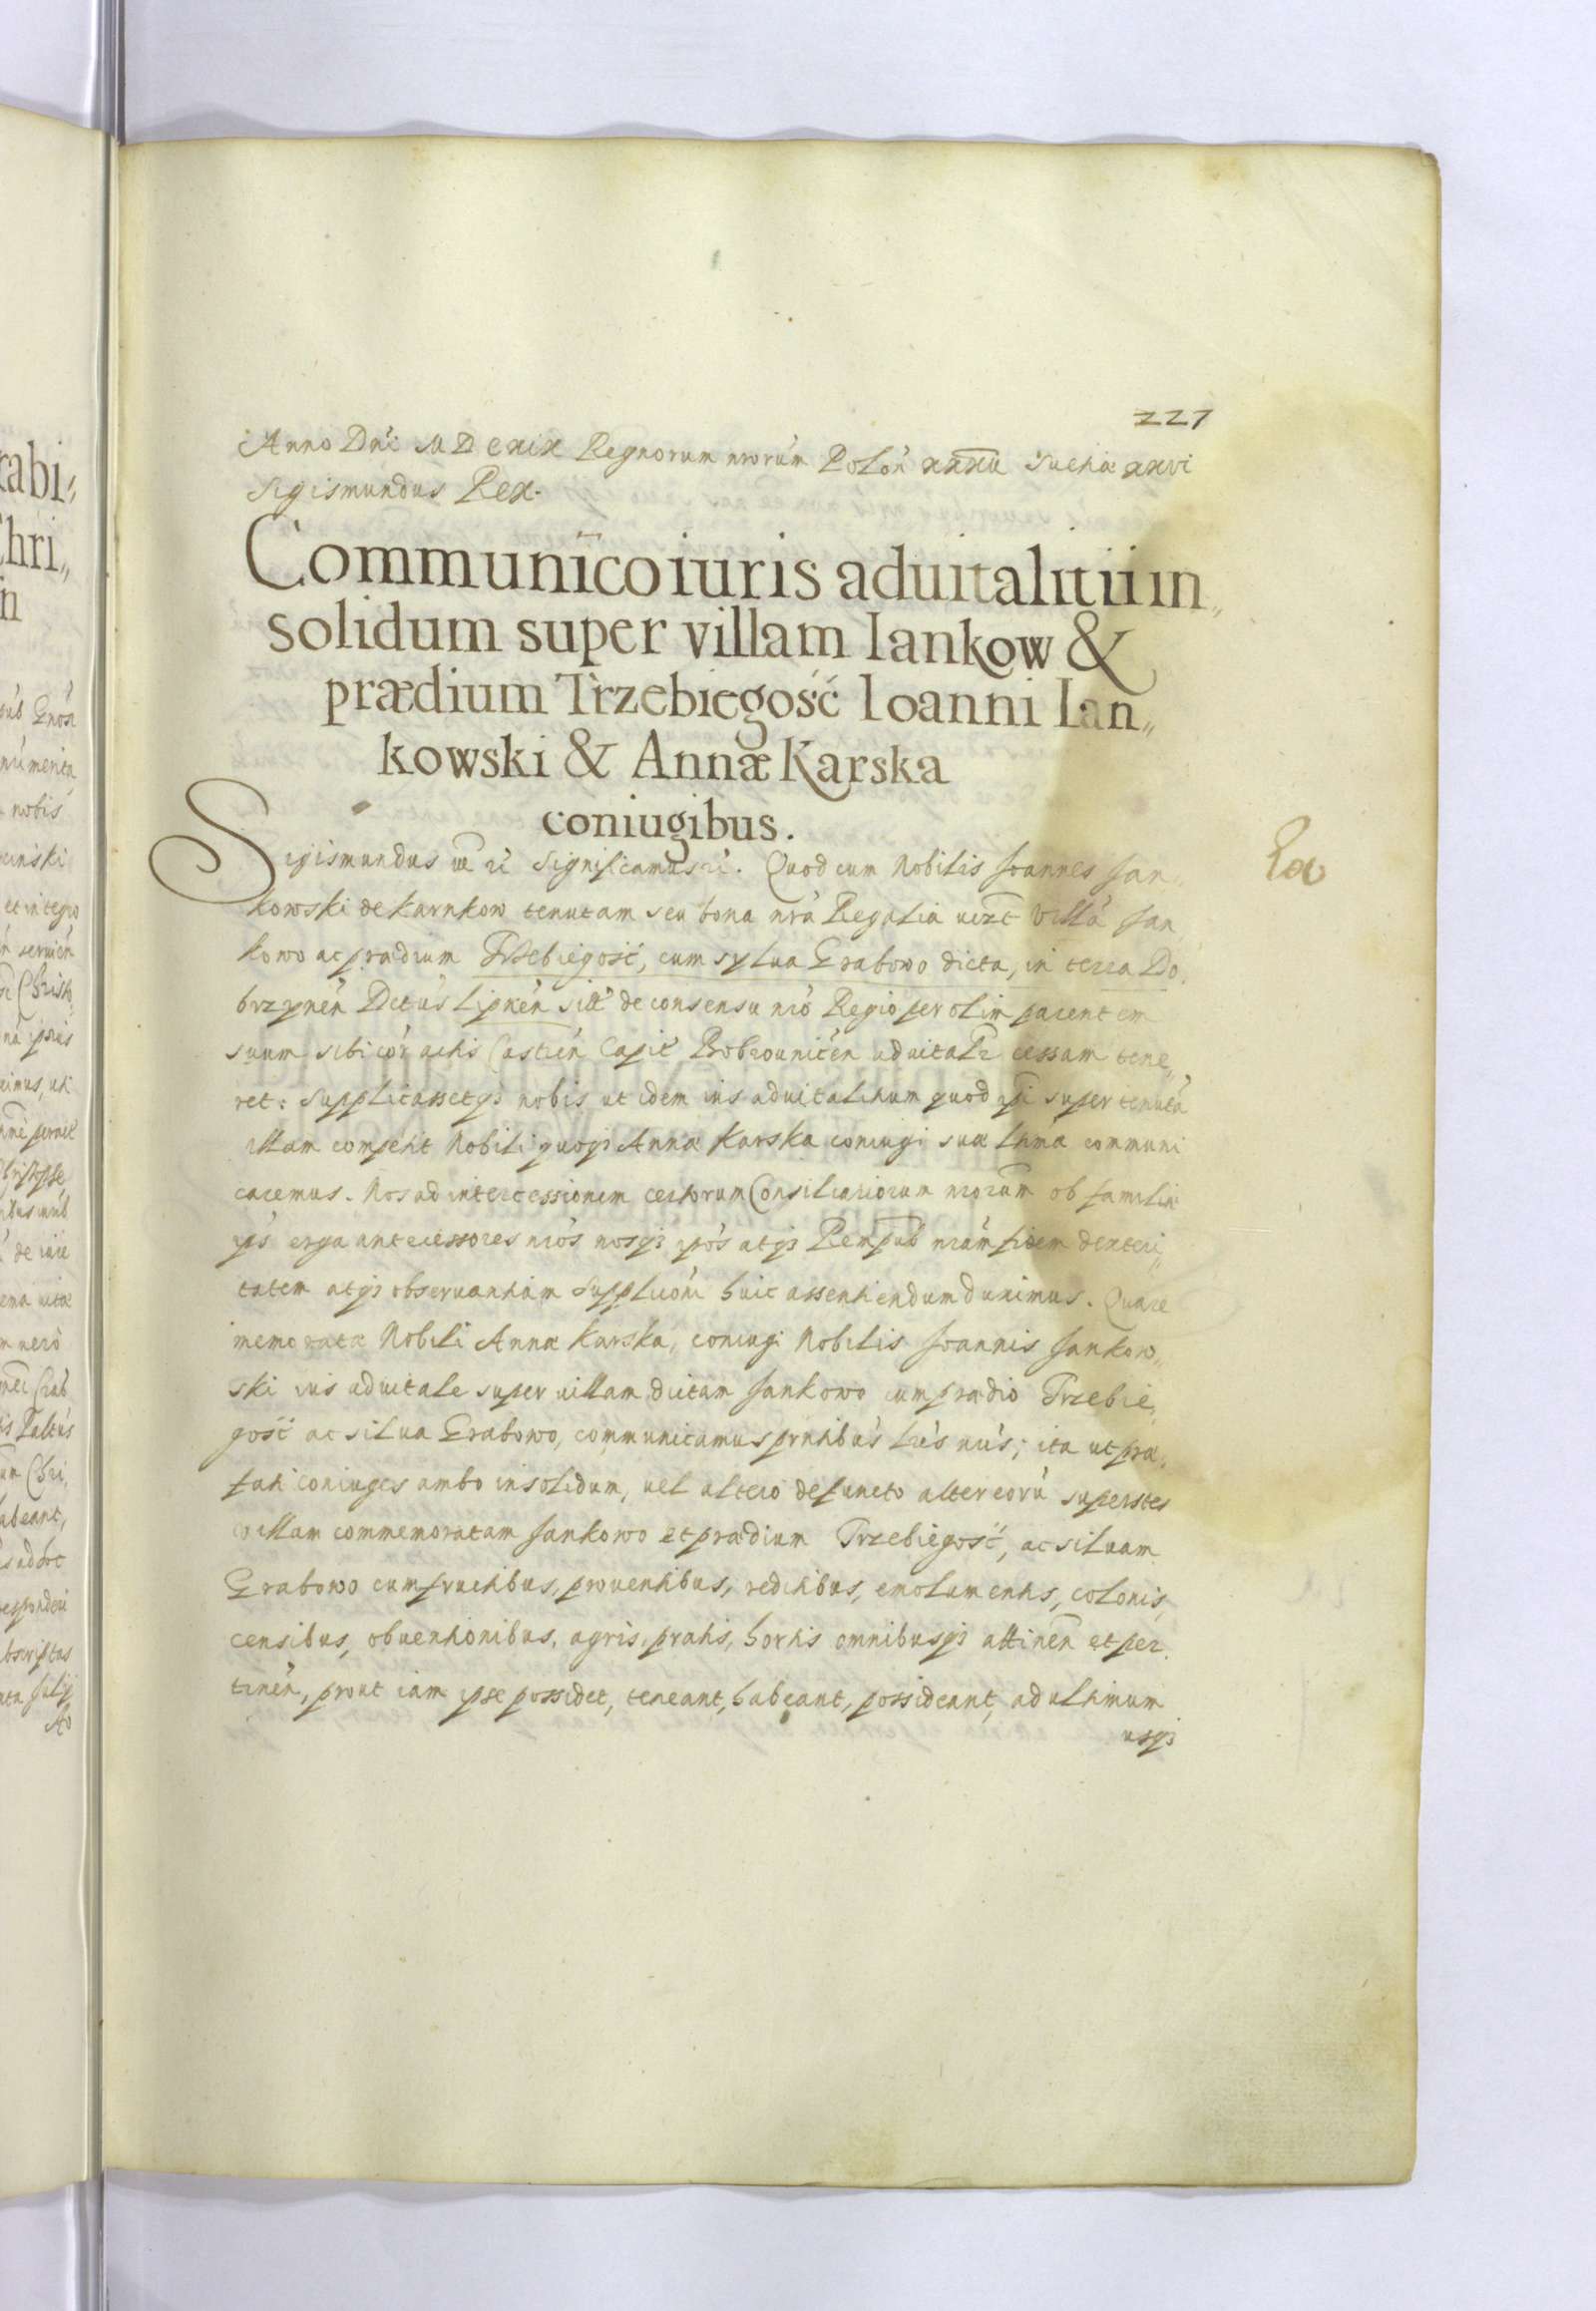 227
Anno Dni MDCXIX Regnorum nrorum Polon XXXII Sueciæ XXVI
Sigismundus Rex.
Communico iuris aduitalitii in„
solidum super villam Iankow &
prædium Trzebiegość Ioanni Ian„
kowski & Annæ Karska
coniugibus.
Sigismundus Significamus. Quod cum Nobilis Joannes Jan„
kowski de Karnkow tenutam seu bona nra Regalia uizt Villã Jan„
kowo ac prædium Trzebiegość, cum sylua Grabowo dicta, in terra Do„
brzynen Dctus Lipnen sitt de consensu nro Regio per olim parentem
suum sibi cor actis Castren Capit Bobrounicen aduitale cessam tene„
ret: Supplicassetq3 nobis ut idem ius aduitalitium quod ipi super tenuta
illam competit Nobili quoq3 Annæ Karska coniugi suæ ltimæ communi
caremus. Nos ad intercessionem certorum Consiliariorum nrorum ob familiæ
ips erga antecessores nros nosq3 ipos atq3 Rempub nram fidem dexteri„
tatem atq3 obseruantiam supplicôni huic assentiendum duximus. Quare
memoratæ Nobili Annæ Karska, coniugi Nobilis Joannis Jankow„
ski ius aduitale super uillam dictam Jankowo cum prædio Trzebie„
gość ac silua Grabowo, communicamus prntibus lris nris; ita ut præ„
fati coniuges ambo in solidum, uel altero defuncto alter eorũ superstes
uillam commemoratam Jankowo et prædium Trzebiegość, ac siluam
Grabowo cum fructibus, prouentibus, reditibus, emolumentis, colonis,
censibus, obuentionibus, agris, pratis, hortis omnibusq3 attinen et per„
tinen, prout iam ipse possidet, teneant, habeant, possideant, ad ultimum
usq3